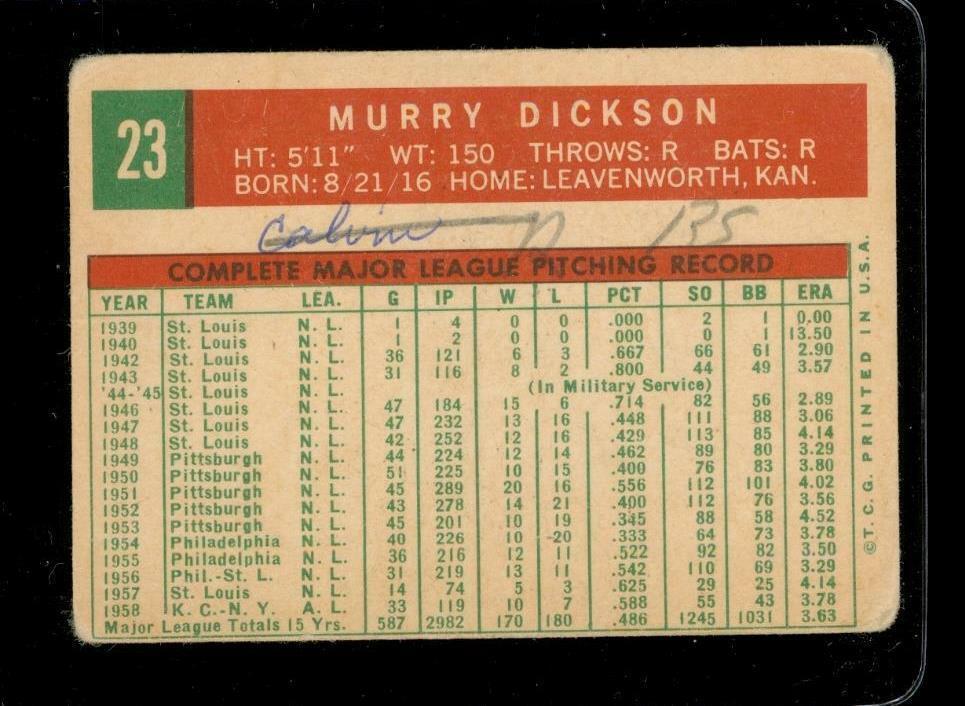 23
MURRY DICKSON
HT: 5'11" WT: 150 THROWS: R BATS: R
BORN: 8/21/16 HOME: LEAVENWORTH, KAN.
Calvin 135
COMPLETE MAJOR LEAGUE PITCHING RECORD
YEAR TEAM LEA. G IP W L PCT SO BB ERA
1939 St. Louis N. L. 1 4 0 0 .000 2 1 0.00
1940 St. Louis N. L. 1 2 0 0 .000 0 1 13.50
1942 St. Louis N. L. 36 121 6 3 .667 66 61 2.90
1943 St. Louis N. L. 31 116 8 2 .800 44 49 3.57
'44-'45 St. Louis N. L. (In Military Service)
1946 St. Louis N. L. 47 184 15 6 .714 82 56 2.89
1947 St. Louis N. L. 47 232 13 16 .448 111 88 3.06
1948 St. Louis N. L. 42 252 12 16 .429 113 85 4.14
1949 Pittsburgh N. L. 44 224 12 14 .462 89 80 3.29
1950 Pittsburgh N. L. 51 225 10 15 .400 76 83 3.80
1951 Pittsburgh N. L. 45 289 20 16 .556 112 101 4.02
1952 Pittsburgh N. L. 43 278 14 21 .400 112 76 3.56
1953 Pittsburgh N. L. 45 201 10 19 .345 88 58 4.52
1954 Philadelphia N. L. 40 226 10 20 .333 64 73 3.78
1955 Philadelphia N. L. 36 216 12 11 .522 92 82 3.50
1956 Phil.-St. L. N. L. 31 219 13 11 .542 110 69 3.29
1957 St. Louis N. L. 14 74 5 3 .625 29 25 4.14
1958 K. C.-N. Y. A. L. 33 119 10 7 .588 55 43 3.78
Major League Totals 15 Yrs. 587 2982 170 180 .486 1245 1031 3.63
©T. C. G. PRINTED IN U.S.A.